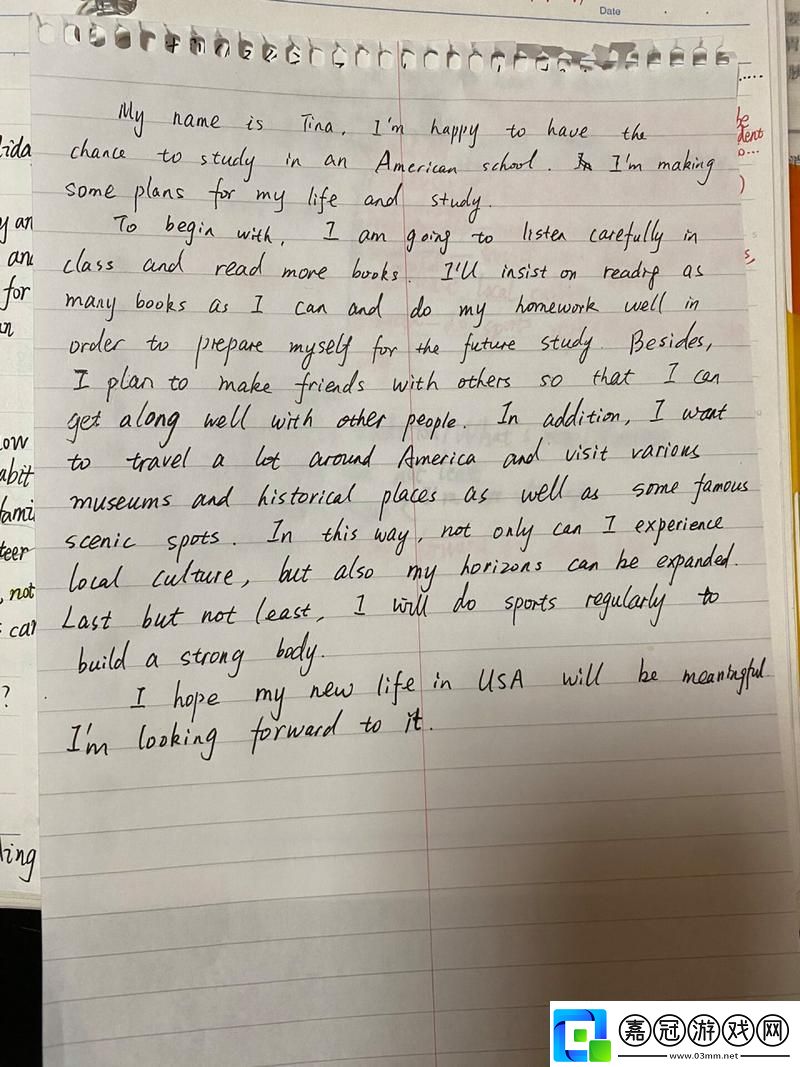 Date
My name is Tina. I'm happy to have the
chance to study in an American school. I'm making
some plans for my life and study.
To begin with, I am going to listen carefully in
class and read more books. I'll insist on readng as
many books as I can and do my homework well in
order to prepare myself for the future study. Besides,
I plan to make friends with others so that I can
get along well with other people. In addition, I want
to travel a lot around America and visit various
museums and historical places as well as some famous
scenic spots. In this way, not only can I experience
local culture, but also my horizons can be expanded.
Last but not least, I will do sports regularly to
build a strong body.
I hope my new life in USA will be meaningful.
I'm looking forward to it.
lida
y an
and
for
ow
abit
fami
teer
, not
s can
?
ling
be
dent
嘉冠游戏网
www.03mm.net